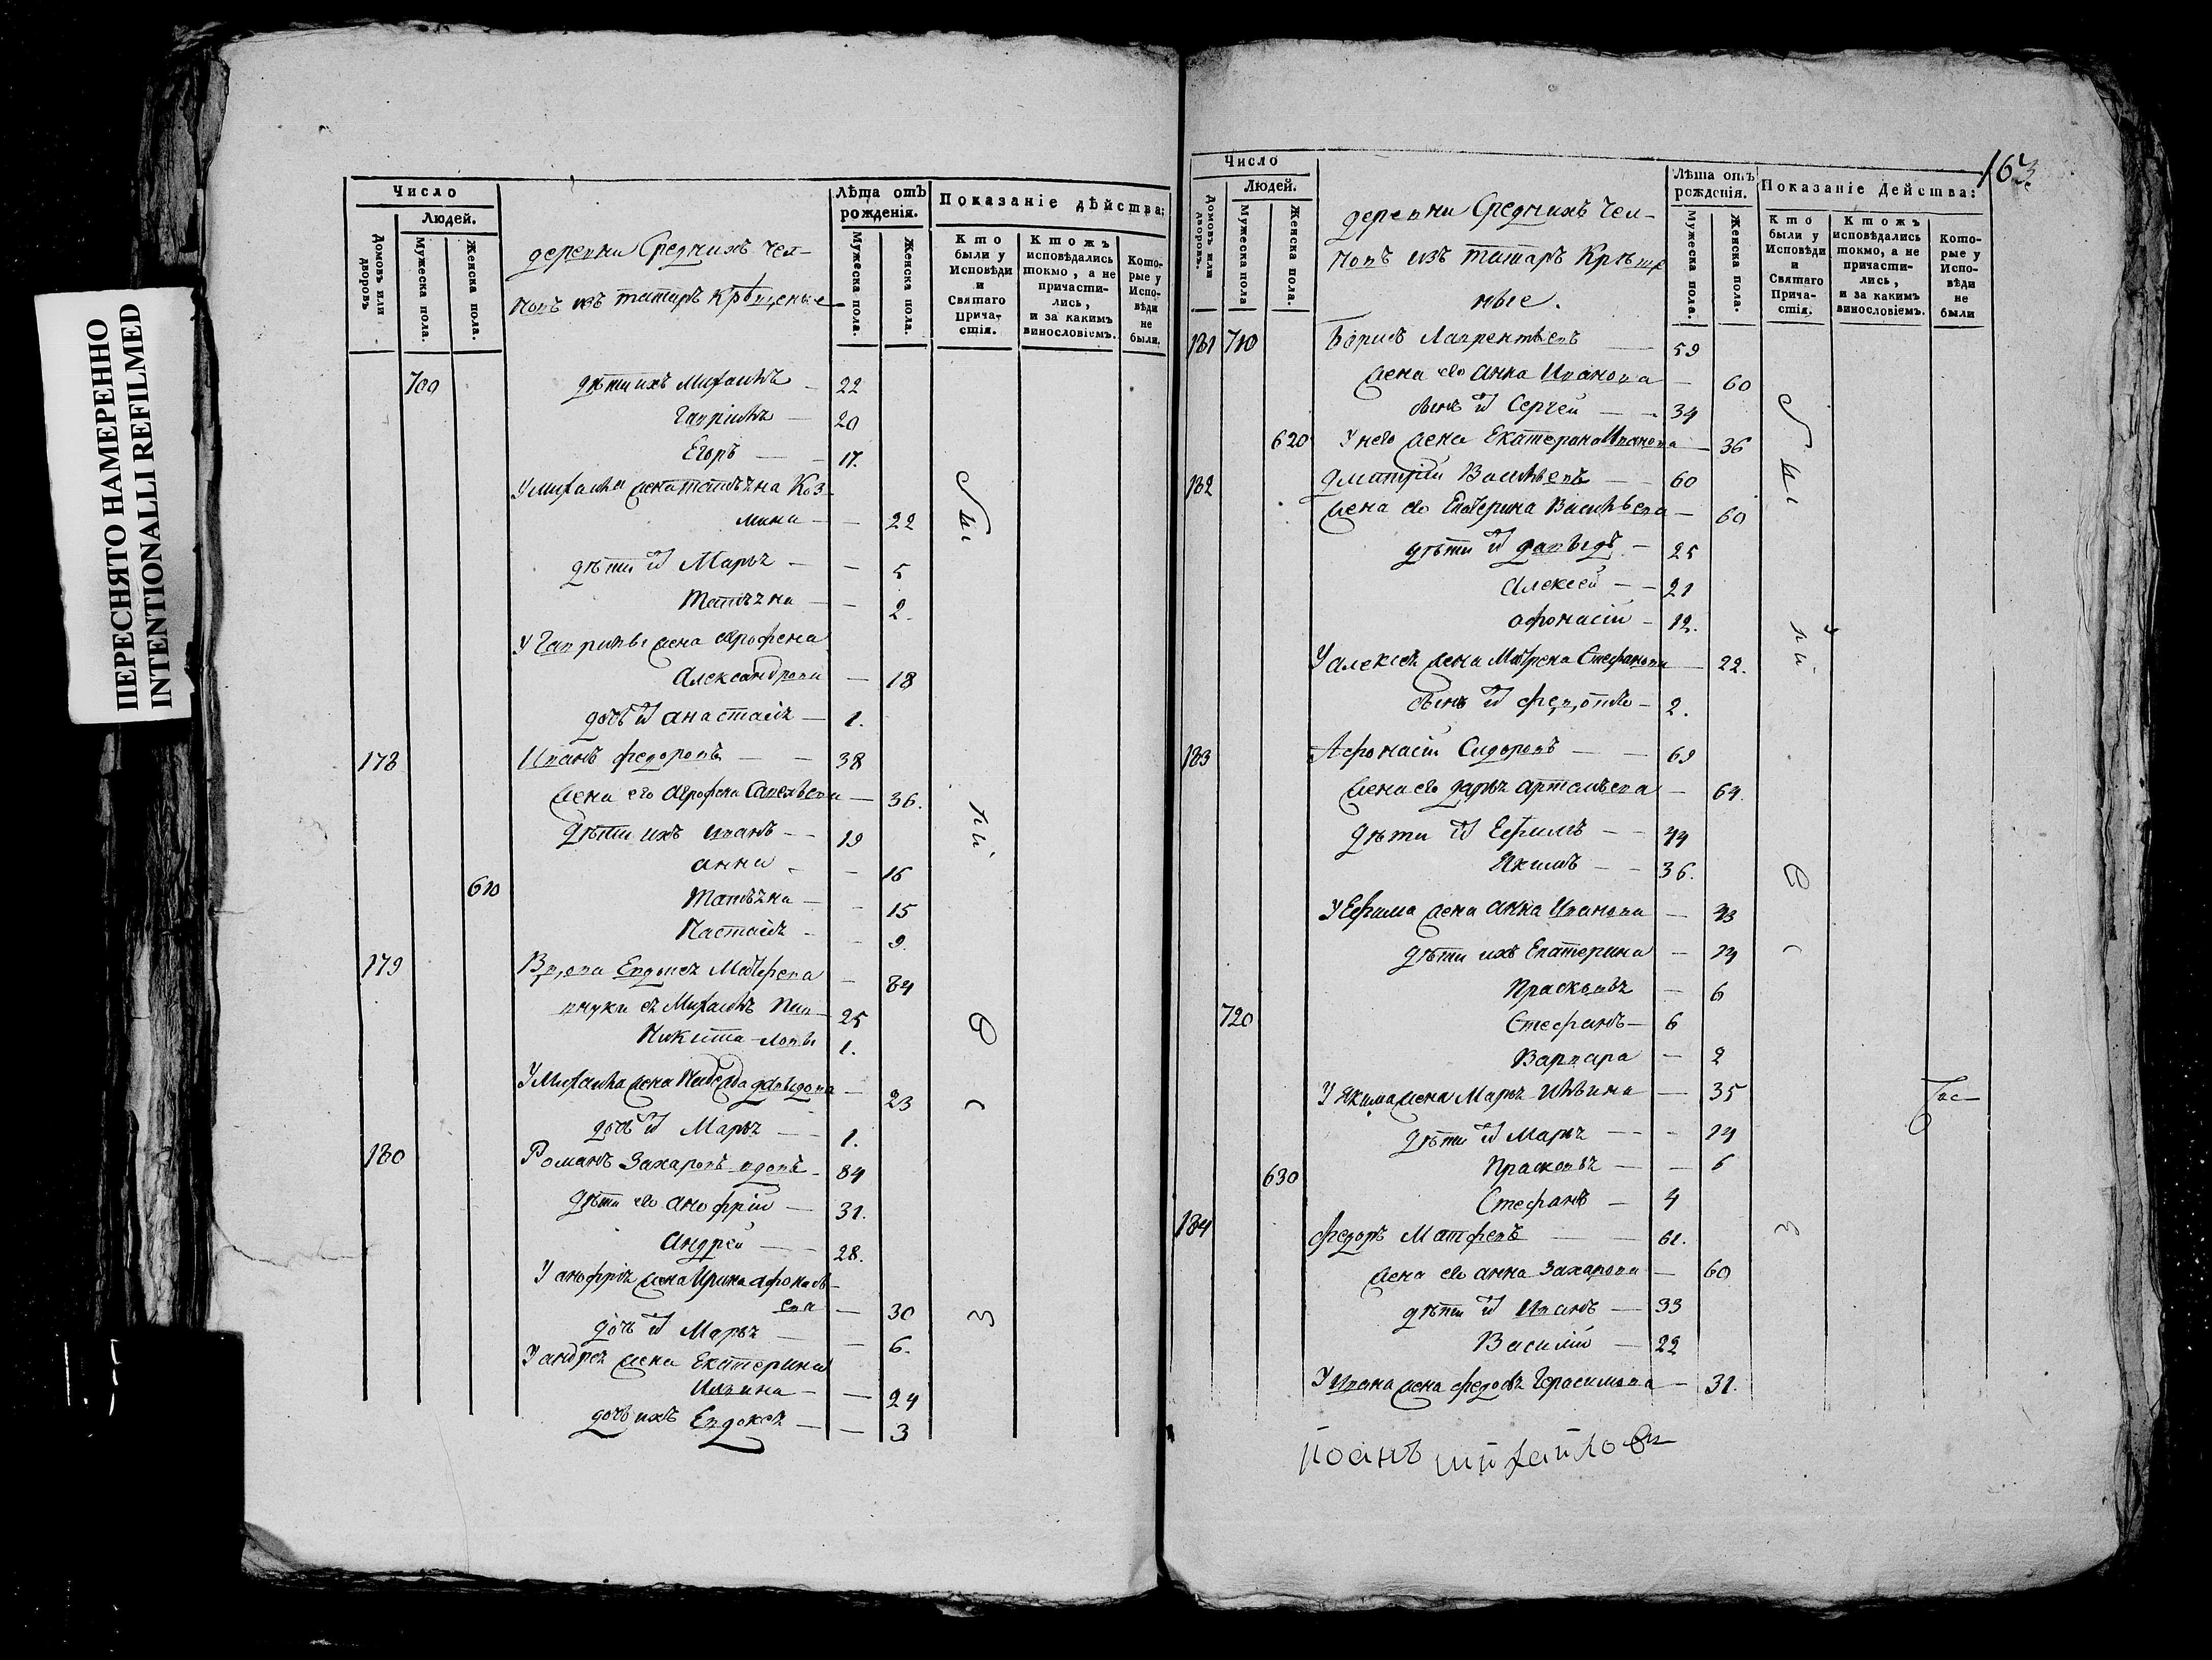 ПЕРЕСНЯТО НАМЕРЕННО
INTENTIONALLI REFILMED
Число
Людей.
Домовъ или дворовъ
Мужеска пола.
Женска пола.
деревни Среднихъ Чел-
новъ изъ татаръ крѣщеные
Лѣта отъ рожденія.
Мужеска пола.
Женска пола.
Показаніе дѣйства:
Кто были у Исповѣди и Святаго Прича-стія.
Ктожъ исповѣдались токмо, а не причасти-лись, и за какимъ винословіемъ.
Кото-рые у Испо-вѣди не были.
700 дѣти ихъ Михаилъ — 22
Гавріилъ — 20
Егоръ — 17.
У Михаила жена Татьяна Коз-
мина — — 22
дѣти их Марья — — 5
Татьяна — — 2.
У Гаврилы жена Агрофена
Александрова — 18
дочь их Анастасія — 1.
178 Иванъ Федоровъ — — 38
жена его Агрофена Савельева — 36.
дѣти ихъ Иванъ — — 19
Анна — — 16
610 Татьяна — — 15
Настасія — — 9.
179 Вдова Евдокея Матфева — 84
внуки ея Михаилъ Пав- 25
Никита -ловы 1.
У Михаила жена Надежда Давыдова — 23
дочь их Марья — — 1.
180 Романъ Захаровъ вдовъ — 84
дѣти его Анофрій — 31.
Андрей — — 28.
У Анофрія жена Ирина Афонась-
ева — 30
дочь их Марья — — 6.
У Андрея жена Екатерина
Ильина — — 24
дочь ихъ Евдокея — — 3
163
Число
Людей.
Домовъ или дворовъ.
Мужеска пола
Женска пола.
деревни Среднихъ Чел-
новъ изъ татаръ Крѣще
ные.
Лѣта отъ рожденія.
Мужеска пола.
Женска пола.
Показаніе Действа:
Кто были у Исповѣди и Святаго Прича-стія.
Ктожъ исповѣдались токмо, а не причасти-лись, и за какимъ винословіемъ.
Кото-рые у Испо-вѣди не были
181 710 Борисъ Лаврентьевъ — 59
жена его Анна Иванова — 60
сынъ их Сергей — — 34
620 У него жена Екатерина Иванова — 36
182 Дмитрій Васильевъ — — 60
жена его Екатерина Васильева — 60
дѣти их Давыдъ — 25
Алексей — — 21
Афонасій — 12.
У Алексея жена Матрена Стефанова — 22.
сынъ их Федотъ — 2.
183 Афонасій Сидоровъ — — 69
жена его Дарья Артемьева — 64.
дѣти их Ефимъ — — 44
Якимъ — — 36.
У Ефима жена Анна Иванова — 43
дѣти ихъ Екатерина — 14
Прасковья — 6
720 Стефанъ — 6
Варвара — 2
У Якима жена Марья Ильина — 35
дѣти их Марья — — 14
630 Прасковья — — 6
Стефанъ — 4
184 Федоръ Матфевъ — — 61.
жена его Анна Захарова — 60
дѣти их Иванъ — 33
Василій — 22
У Ивана жена Федосья Герасимова — 31.
Іоанъ Михайловъ